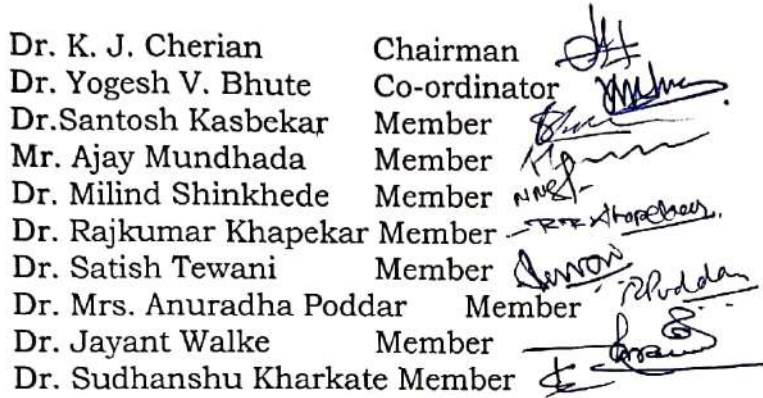 Dr. K. J. Cherian Chairman
Dr. Yogesh V. Bhute Co-ordinator
Dr.Santosh Kasbekar Member
Mr. Ajay Mundhada Member
Dr. Milind Shinkhede Member
Dr. Rajkumar Khapekar Member
Dr. Satish Tewani Member
Dr. Mrs. Anuradha Poddar Member
Dr. Jayant Walke Member
Dr. Sudhanshu Kharkate Member